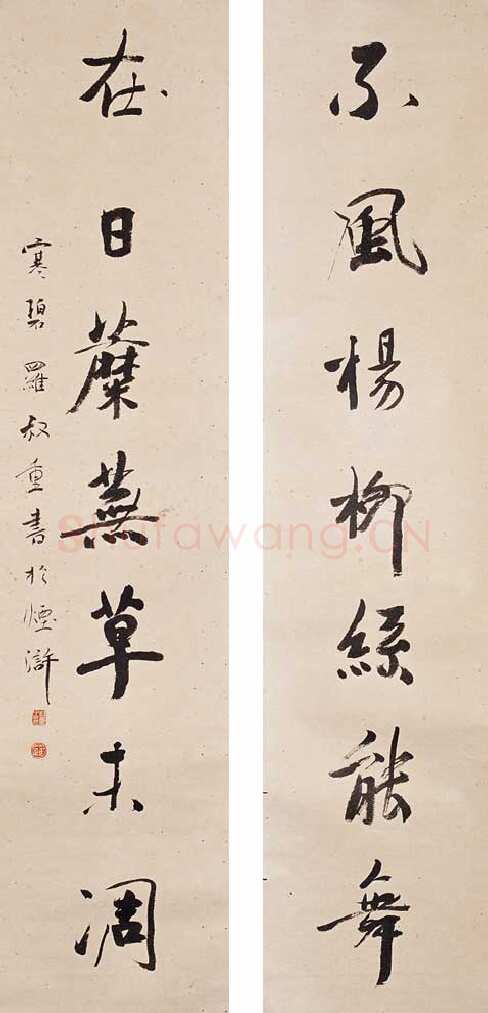 不風楊柳絲能舞
在日蘼蕪草未凋
寒碧羅叔重書於煙滸
Shufawang.CN